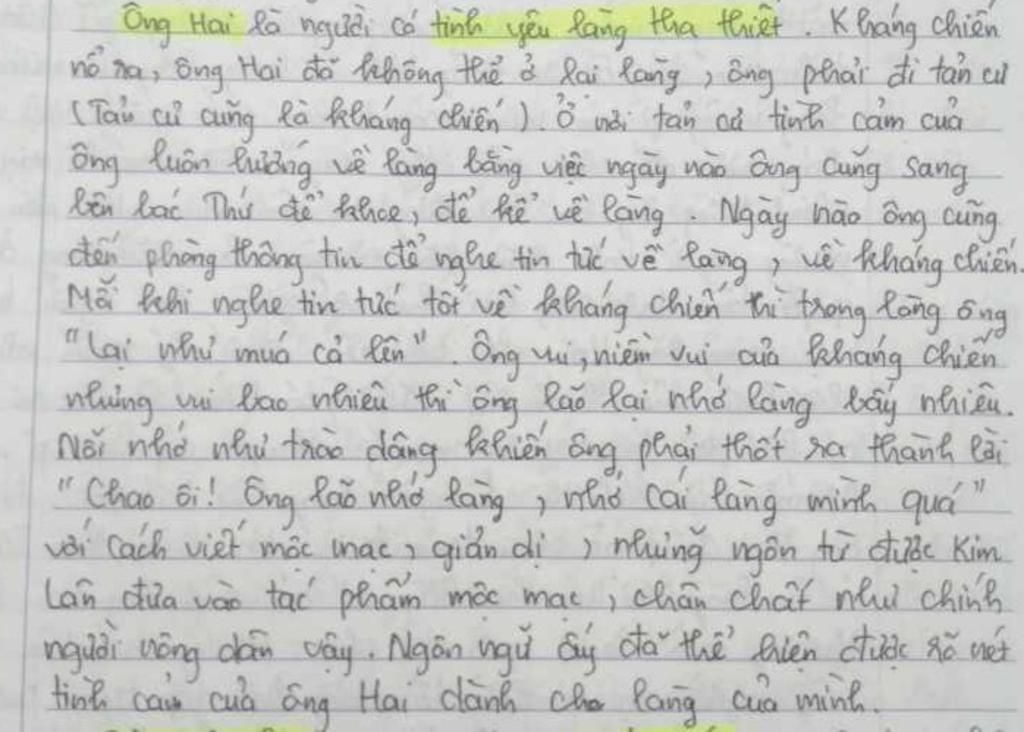 Ông Hai là người có tình yêu làng tha thiết. Kháng chiến
nổ ra, ông Hai đã không thể ở lại làng, ông phải đi tản cư
(Tản cư cũng là kháng chiến). Ở nơi tản cư tình cảm của
ông luôn hướng về làng bằng việc ngày nào ông cũng sang
bên bác Thứ để khoe, để kể về làng. Ngày nào ông cũng
đến phòng thông tin để nghe tin tức về làng, về kháng chiến.
Mỗi khi nghe tin tức tốt về kháng chiến thì trong lòng ông
"Lại như múa cả lên". Ông vui, niềm vui của kháng chiến
nhưng vui bao nhiêu thì ông lão lại nhớ làng bấy nhiêu.
Nỗi nhớ như trào dâng khiến ông phải thốt ra thành lời
"Chao ôi! Ông lão nhớ làng, nhớ cái làng mình quá"
với cách viết mộc mạc, giản dị, những ngôn từ được Kim
Lân đưa vào tác phẩm mộc mạc, chân chất như chính
người nông dân vậy. Ngôn ngữ ấy đã thể hiện được rõ nét
tình cảm của ông Hai dành cho làng của mình.